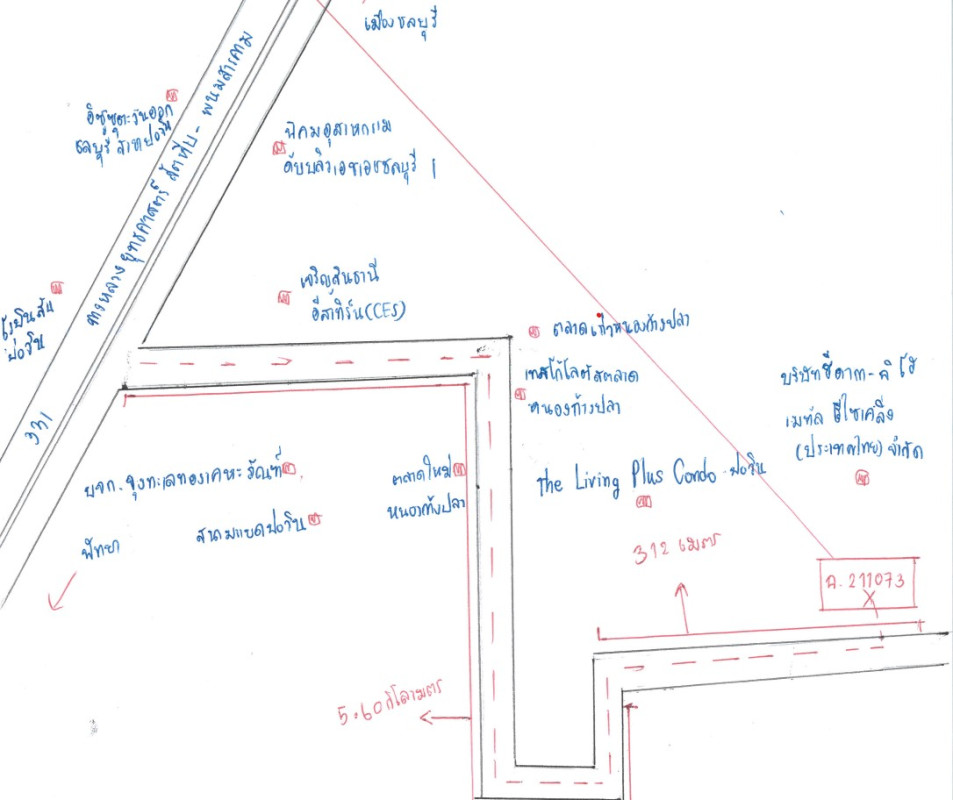 เมืองชลบุรี
อีซูซุตะวันออก
ชลบุรี สาขาบ่อวิน
ทางหลวงยุทธศาสตร์ สัตหีบ - พนมสารคาม
331
นิคมอุตสาหกรรม
ดับบลิวเอชเอชลบุรี 1
เจริญสินธานี
อีสเทิร์น(CES)
โรบินสัน
บ่อวิน
ตลาดเก่าหนองก้างปลา
เทสโก้โลตัสตลาด
หนองก้างปลา
บริษัท
เมทัล รีไซเคลิ่ง
(ประเทศไทย) จำกัด
the Living Plus Condo บ่อวิน
บจก.
ตลาดใหม่
หนองก้างปลา
สนามแบดบ่อวิน
พัทยา
312 เมตร
ฉ. 211073
5.60 กิโลเมตร